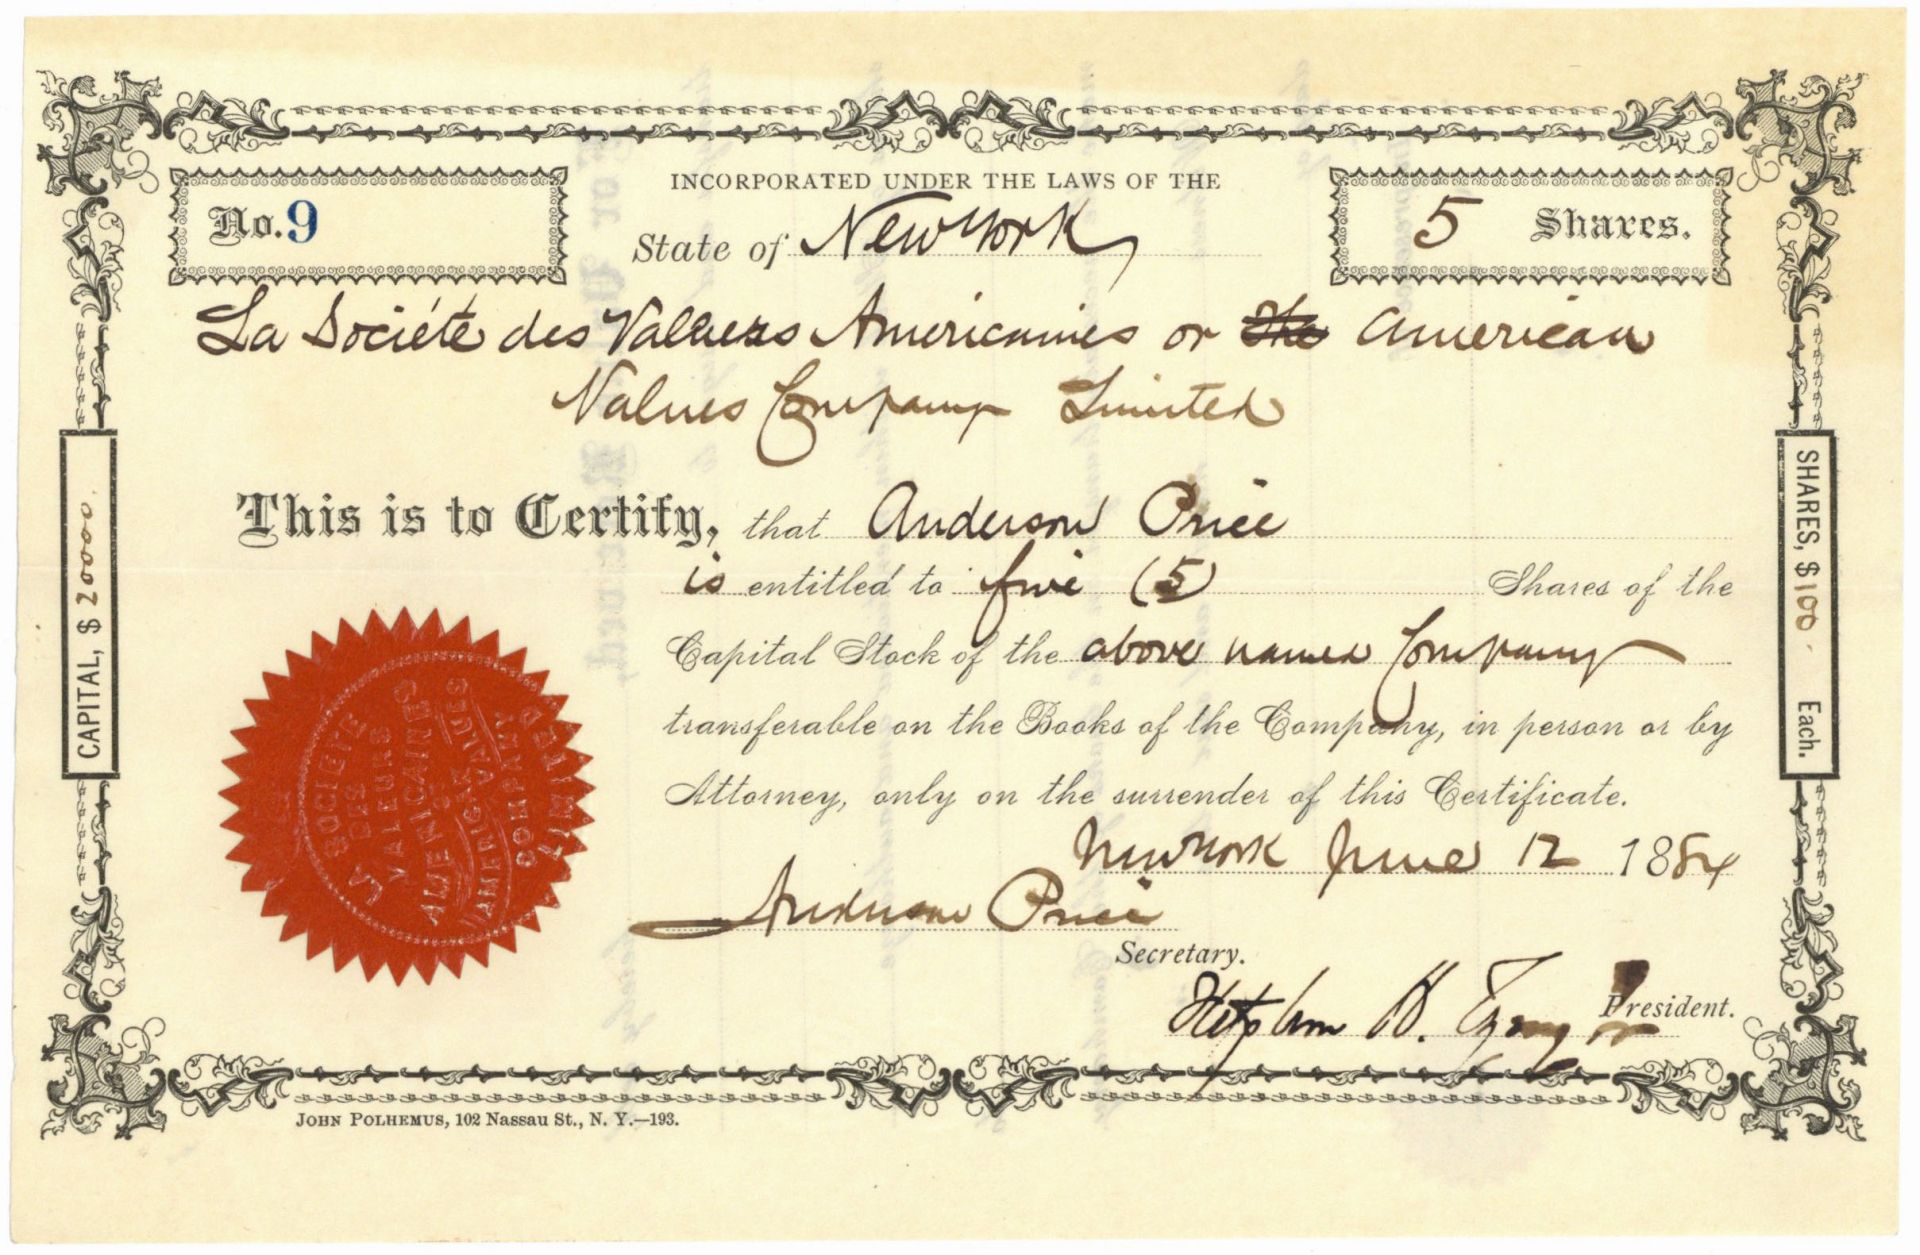 INCORPORATED UNDER THE LAWS OF THE
No. 9
State of New York,
5 Shares.
La Société des Valeurs Americaines or the American
Values Company Limited
This is to Certify, that Anderson Price
is entitled to five (5) Shares of the
Capital Stock of the above named Company
transferable on the Books of the Company, in person or by
Attorney, only on the surrender of this Certificate.
New York June 12 1884
Anderson Price
Secretary.
Stephen H.
President.
CAPITAL, $ 20000.
SHARES, $100. Each.
LA SOCIETE
DES
VALEURS
AMERICAINES
OR
AMERICAN VALUES
COMPANY
LIMITED
JOHN POLHEMUS, 102 Nassau St., N. Y.—193.